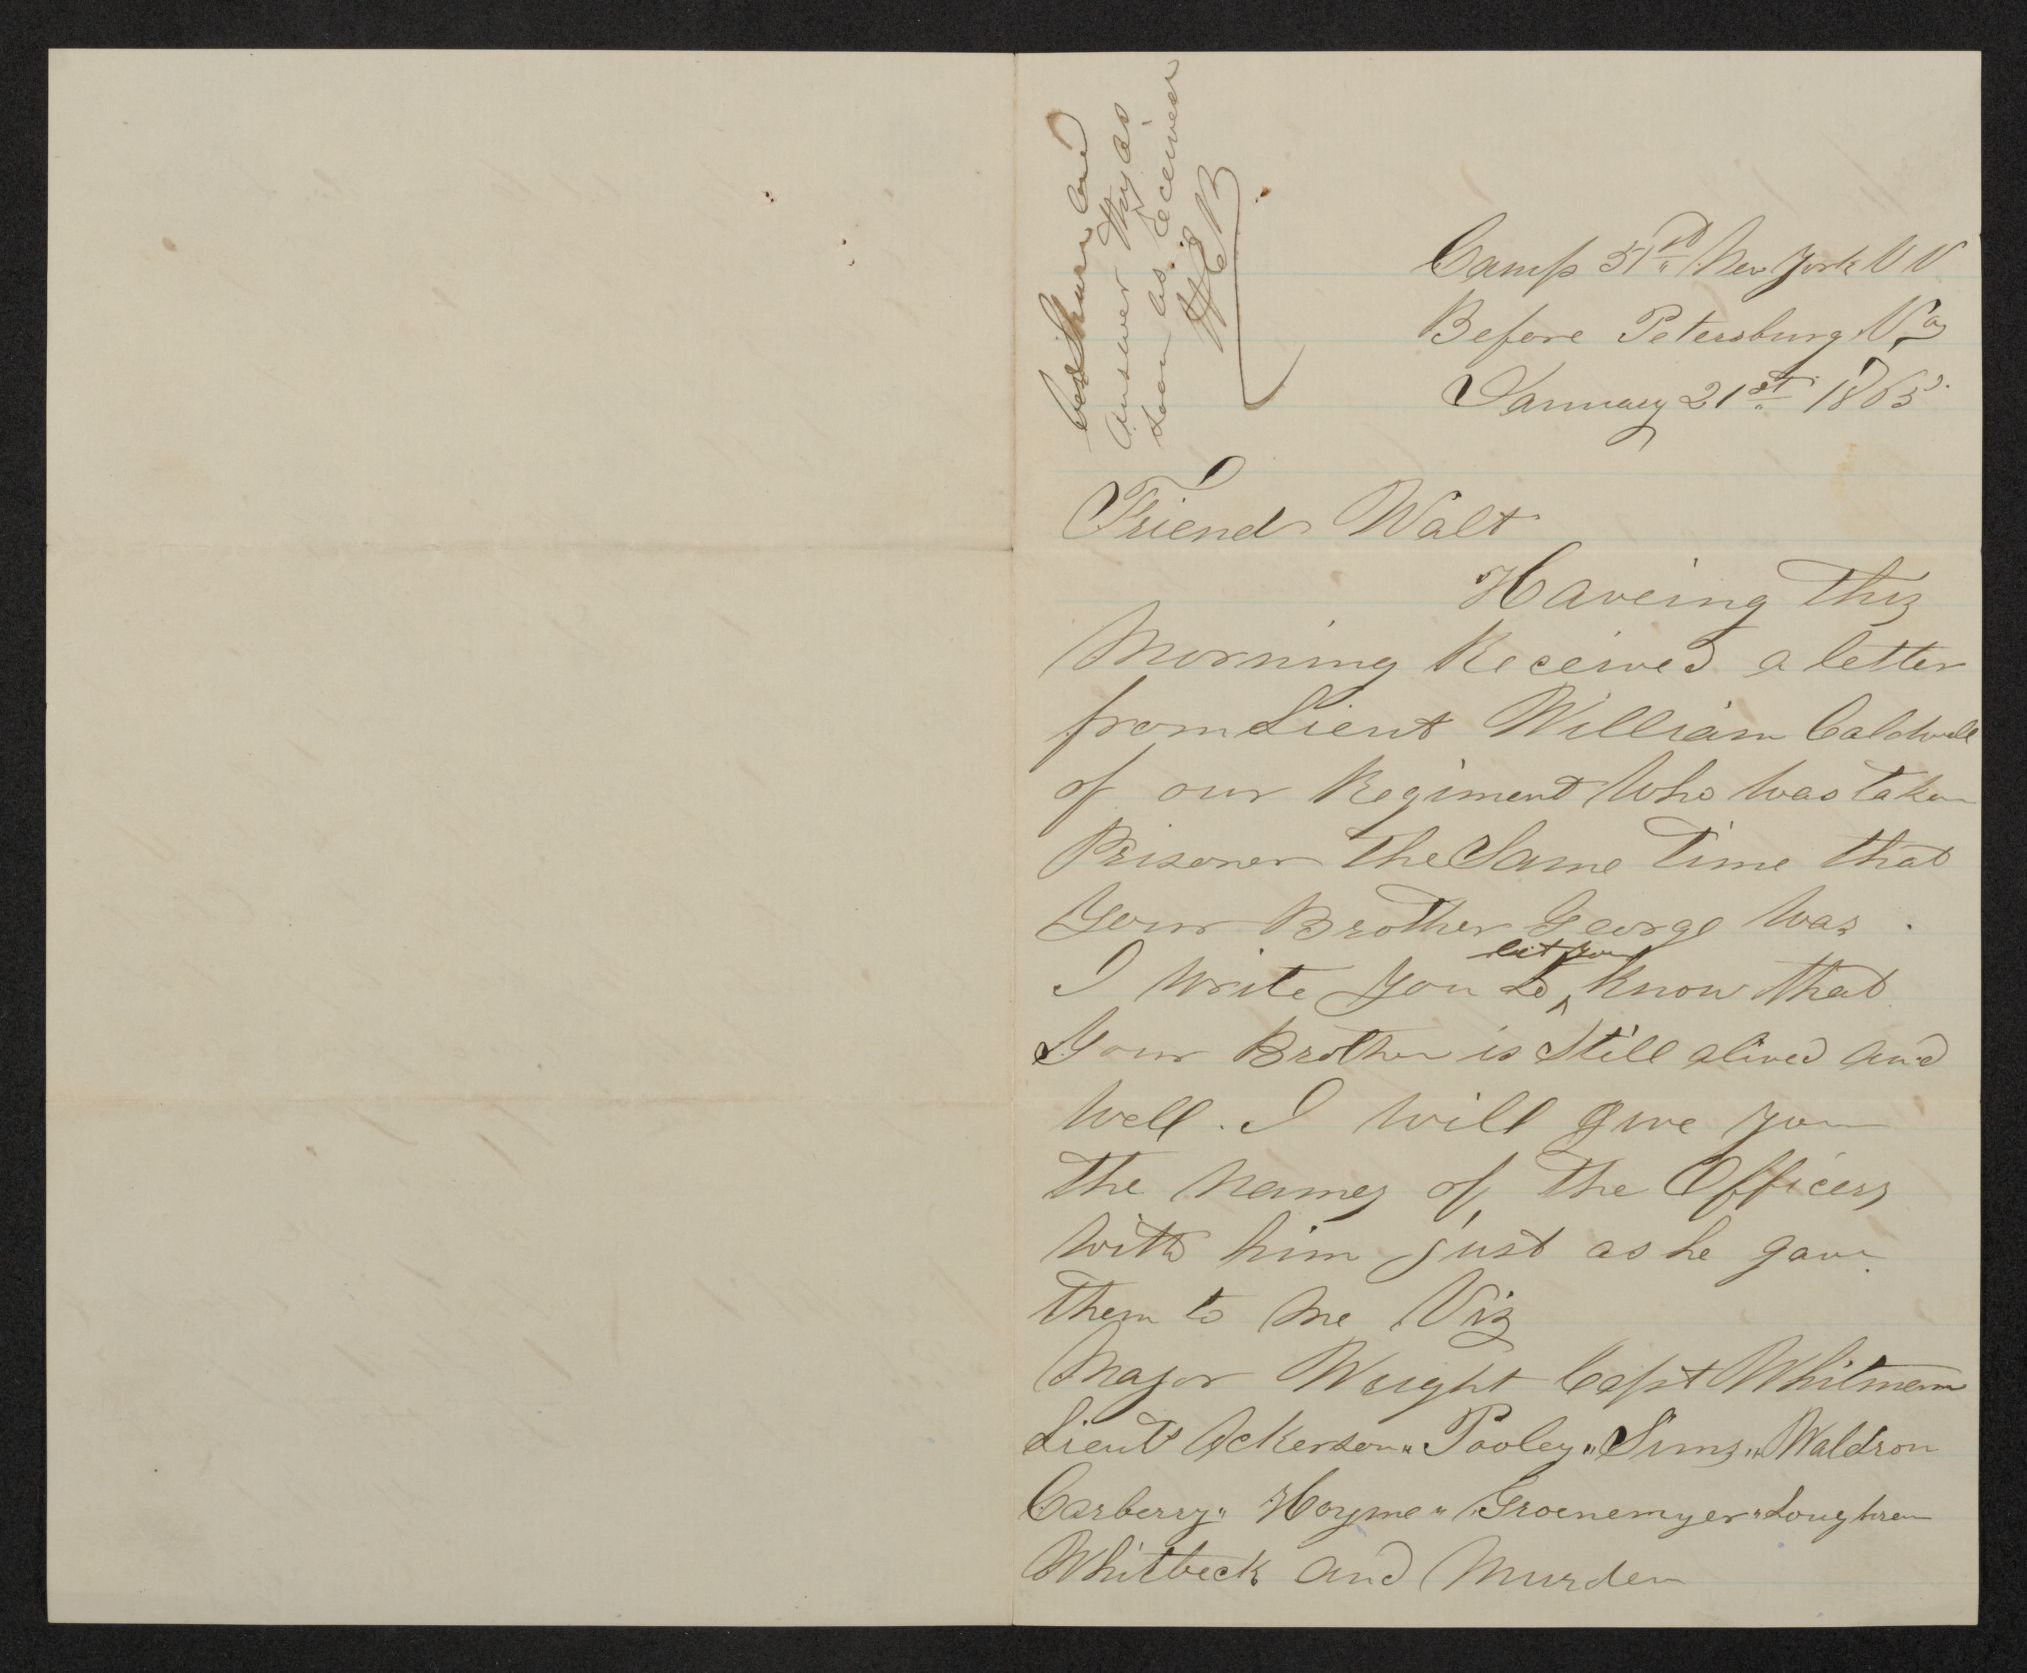 be Shure and
answer this as
soon as received
W E B
Camp 51st New York V V
Before Petersburg Va
January 21st 1865
Friend Walt
Haveing this
Morning Received a letter
from Lieut William Caldwell
of our Regiment Who was taken
Prisoner the Same Time that
Your Brother George was.
I write you to let you know that
Your Brother is Still alived and
well. I will give you
the names of the Officers
with him just as he gave
them to me Viz
Major Wright Capt Whitman
Lieut Ackerson " Pooley " Sims " Waldron
Carberry " Hoyme " Groenemyer " Loughren
Whitbeck and Murden